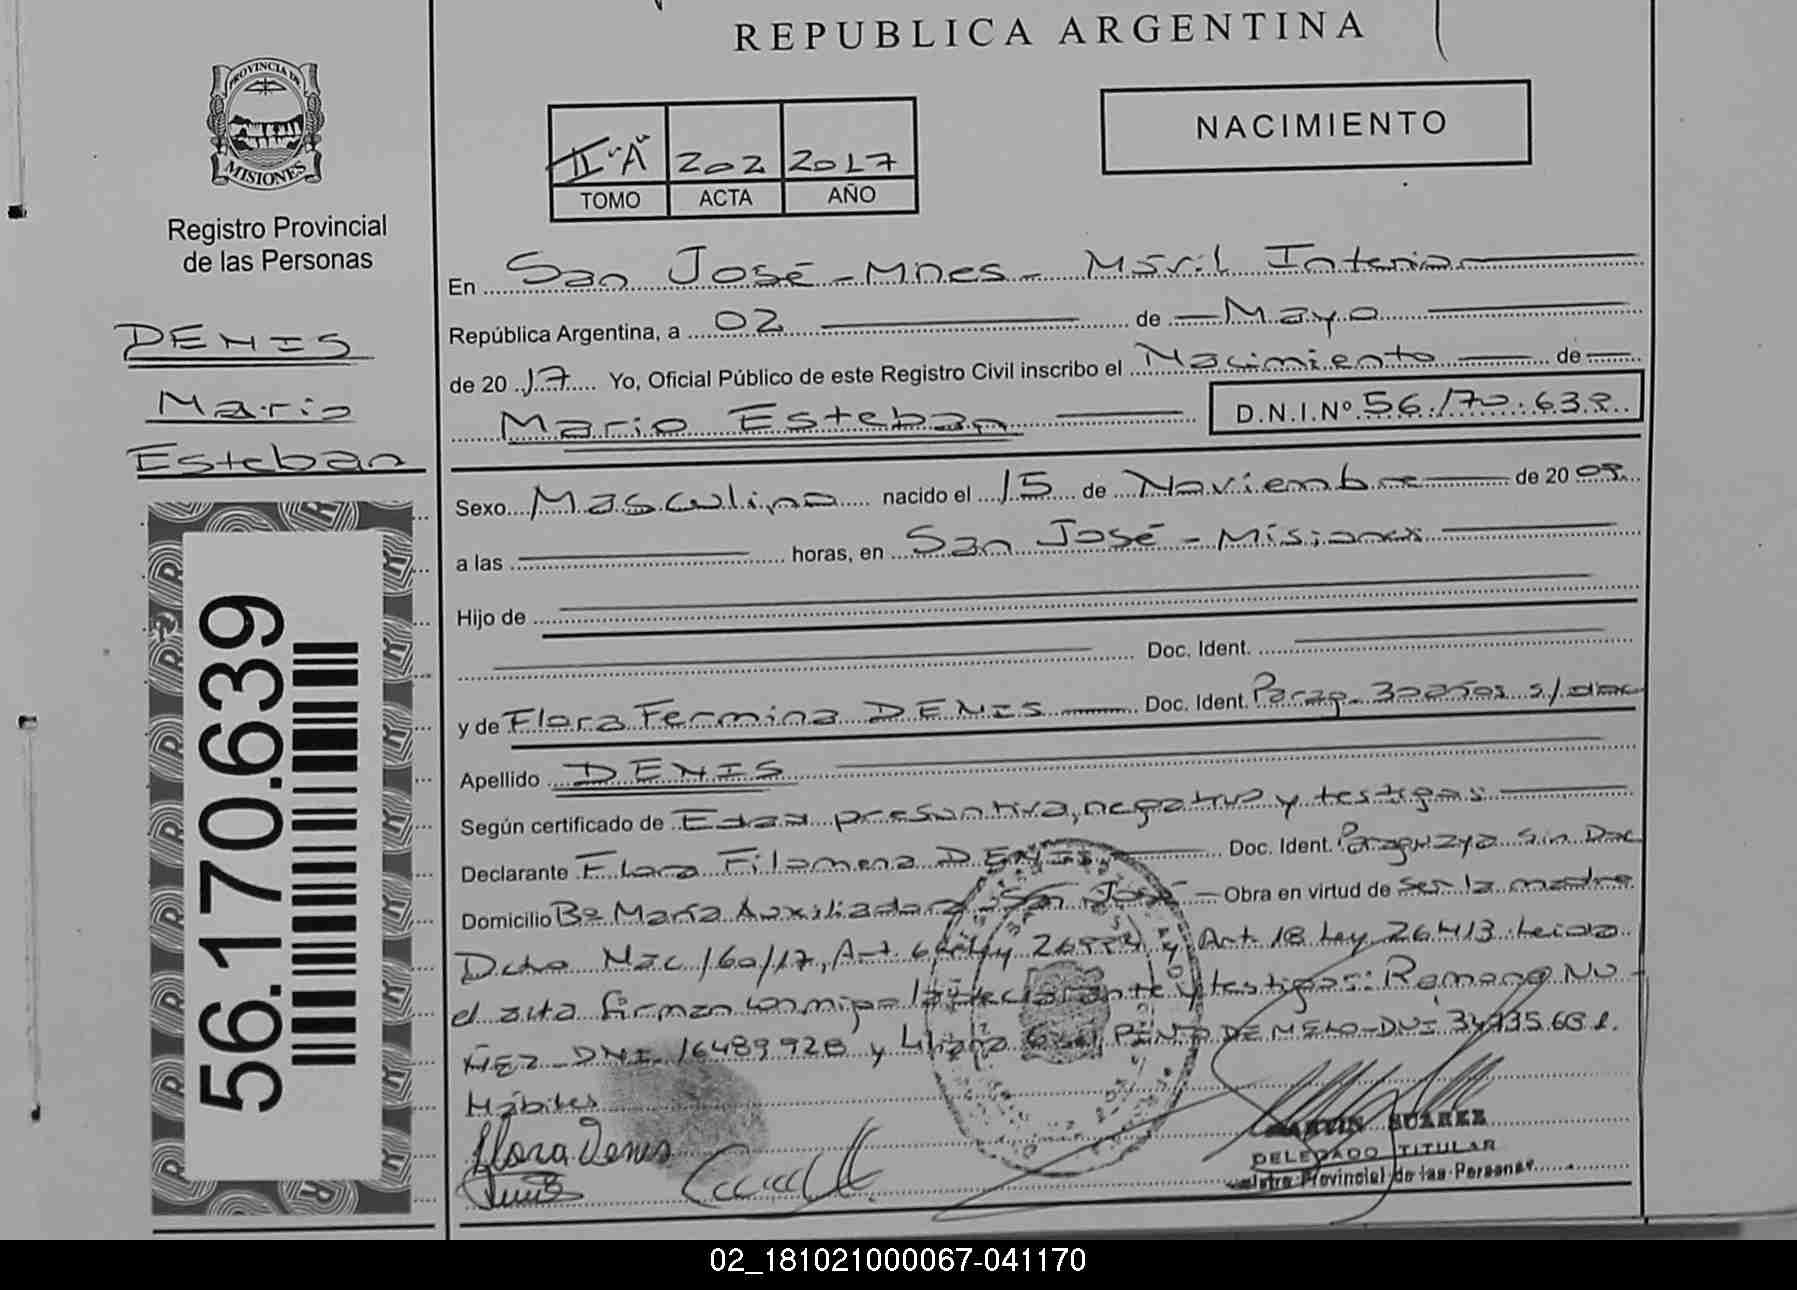 REPUBLICA ARGENTINA
NACIMIENTO
PROVINCIA DE
MISIONES
Registro Provincial
de las Personas
DENIS
Mario
Esteban
56.170.639
II "A" 202 2017
TOMO ACTA AÑO
En San José - Mnes - Móvil Interior
República Argentina, a 02 de Mayo
de 2017 Yo, Oficial Público de este Registro Civil inscribo el Nacimiento de
Mario Esteban D.N.I.Nº 56.170.639
Sexo Masculino nacido el 15 de Noviembre de 20
a las horas, en San José - Misiones
Hijo de
Doc. Ident.
y de Flora Fermina DENIS Doc. Ident. Parag. s/doc
Apellido DENIS
Según certificado de Edad presuntiva, negativo y testigos
Declarante Flora Filomena DENIS Doc. Ident. Paraguaya Sin Doc
Domicilio Bº María Auxiliadora - San José Obra en virtud de ser la madre
Dcto Nac 160/17, Art. Ley y Art. 18 Ley 26413. Leida
el acta firman conmigo la declarante y testigos: Romano NU-
ÑEZ DNI 16489928 y Liliana PINTO DE MELO - DNI
Hábiles
Flora Denis
MARTIN SUAREZ
DELEGADO TITULAR
Registro Provincial de las Personas
02_181021000067-041170